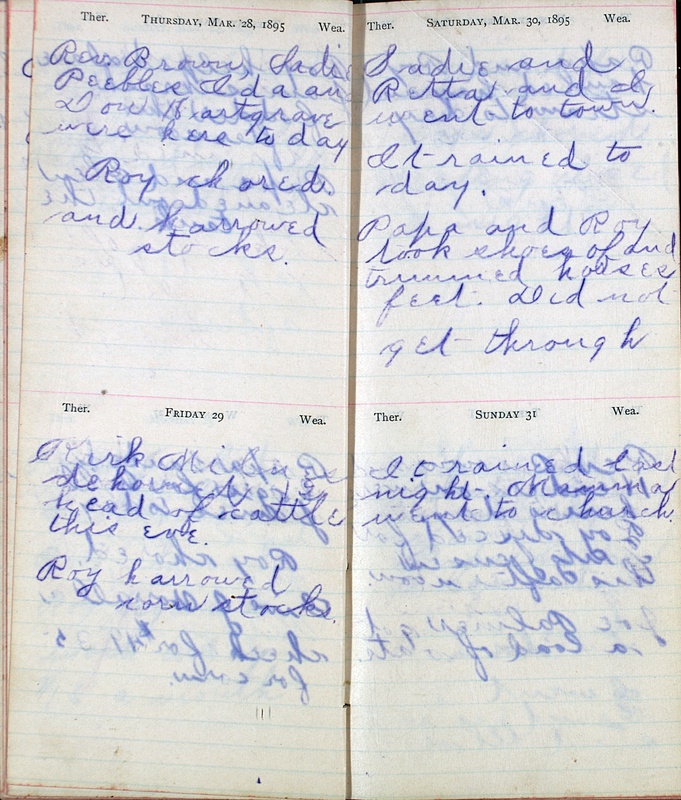 Ther. THURSDAY, MAR. 28, 1895 Wea.
Rev. Brown, Sadie
Peebles Ida an
Don Hartgrave
were here to day
Roy chored.
and harrowed
stocks.
Ther. FRIDAY 29 Wea.
Kirk
dehorned
head of cattle
this eve.
Roy harrowed
corn stocks.
Ther. SATURDAY, MAR. 30, 1895 Wea.
Sadie and
Retta and I
went to town.
It rained to
day.
Papa and Roy
took shoes of and
trimmed horses
feet. Did not
get through
Ther. SUNDAY 31 Wea.
It rained last
night. Mamma
went to church.